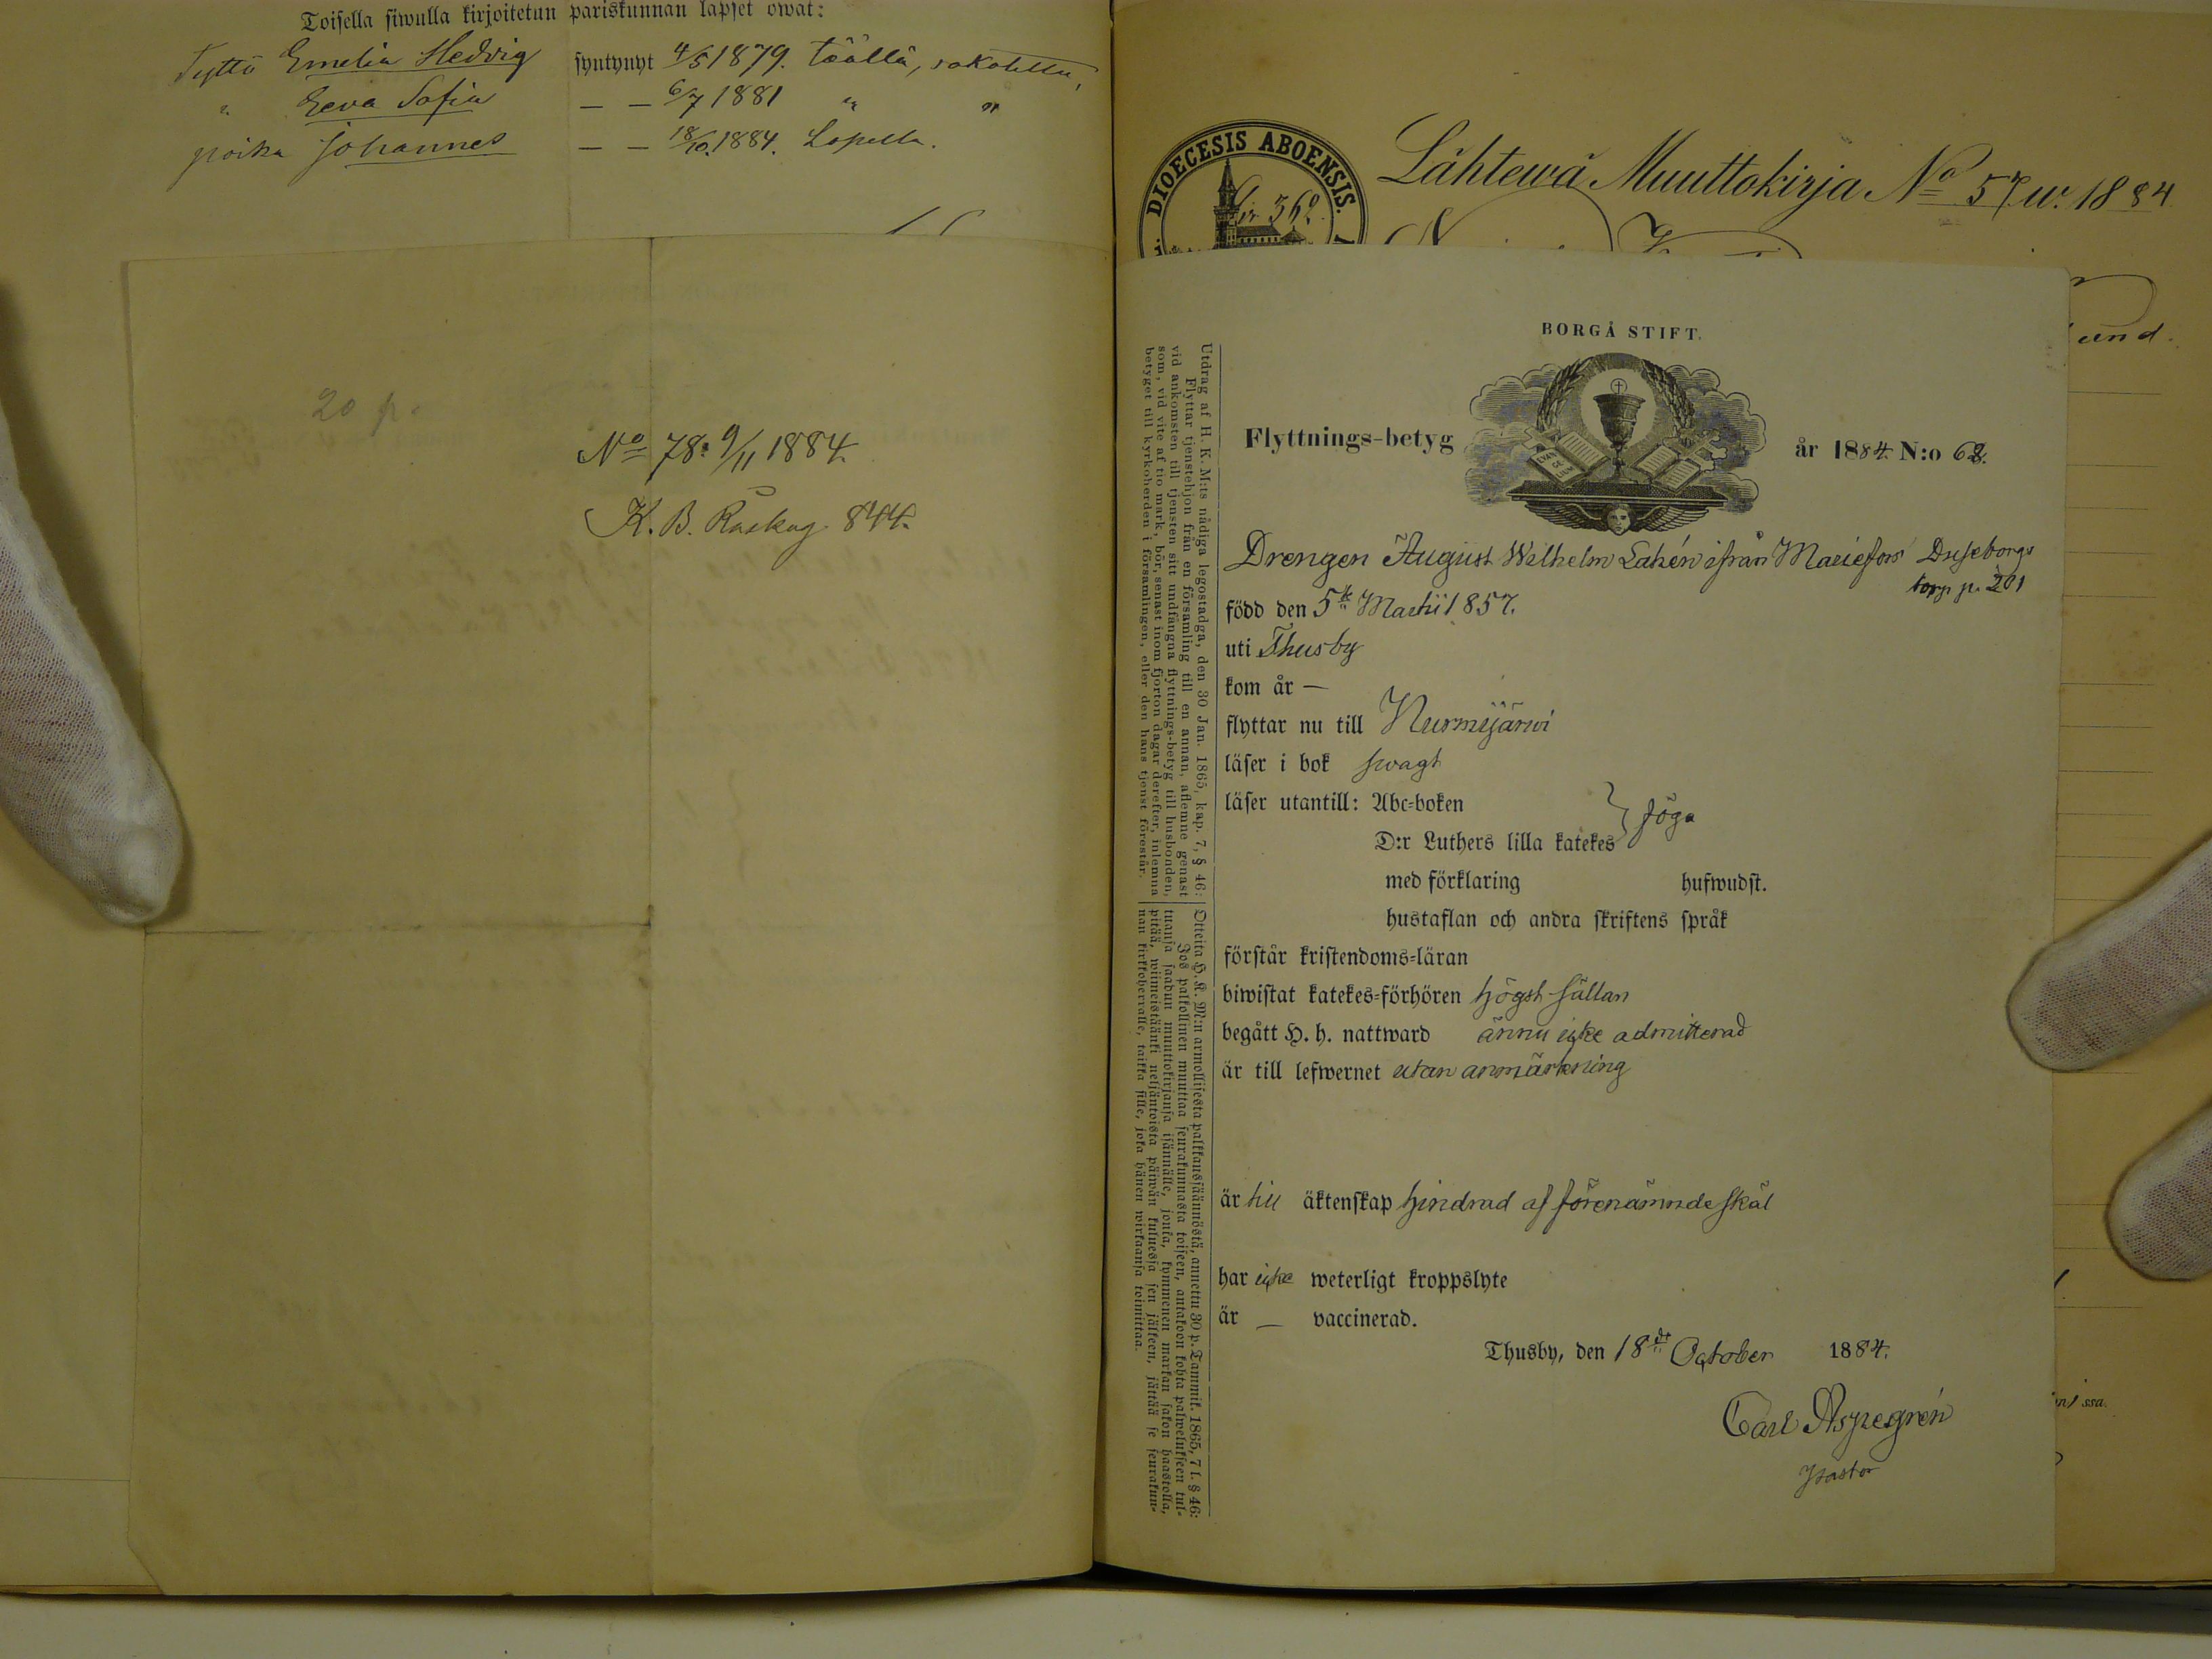 Toisella siwulla kirjoitetun pariskunnan lapset owat:
Tyttö Emelia Hedvig syntynyt 4/5 1879. täällä, rokotettu,
" Eeva Sofia — — 6/7 1881 " "
poika Johannes — — 18/10. 1884. Lopella.
20 p.
No 78. 9/11 1884.
K. B. Raskog 844.
DIOECESIS ABOENSIS.
Lähtewä Muuttokirja No 57 w. 1884
und.
BORGÅ STIFT.
EVAN GE LIUM
Flyttnings-betyg år 1884. N:o 68.
Drengen August Wilhelm Lahén ifrån Mariefors
torp p. 201
född den 5te Martii 1857.
uti Thusby
kom år —
flyttar nu till Nurmijärwi
läser i bok swagt
läser utantill: Abc-boken
D:r Luthers lilla katekes } föga
med förklaring hufwudst.
hustaflan och andra skriftens språk
förstår kristendoms-läran
biwistat katekes-förhören högst sällan
begått H. h. nattward ännu icke admitterad
är till lefwernet utan anmärkning
är till äktenskap hindrad af förenämnde skäl
har icke weterligt kroppslyte
är — vaccinerad.
Thusby, den 18de October 1884.
Carl Aspegrén
Pastor
Utdrag af H. K. M:ts nådiga legostadga, den 30 Jan. 1865, kap. 7, § 46:
Flyttar tjenstehjon från en församling till en annan, aflemne genast
vid ankomsten till tjensten sitt undfångna flyttnings-betyg till husbonden,
som, vid vite af tio mark, bör, senast inom fjorton dagar derefter, inlemna
betyget till kyrkoherden i församlingen, eller den hans tjenst förestår.
Otteita H. K. M:n armollisesta palkkaussäännöstä, annettu 30 p. Tammik. 1865, 7 l. § 46:
Jos palkollinen muuttaa seurakunnasta toiseen, antakoon kohta palwelukseen tul-
tuansa saadun muuttokirjansa isännälle, jonka, kymmenen markan sakon haastolla,
pitää, wiimeistäänki neljäntoista päiwän kuluessa sen jälkeen, jättää se seurakun-
nan kirkkoherralle, taikka sille, joka hänen wirkaansa toimittaa.